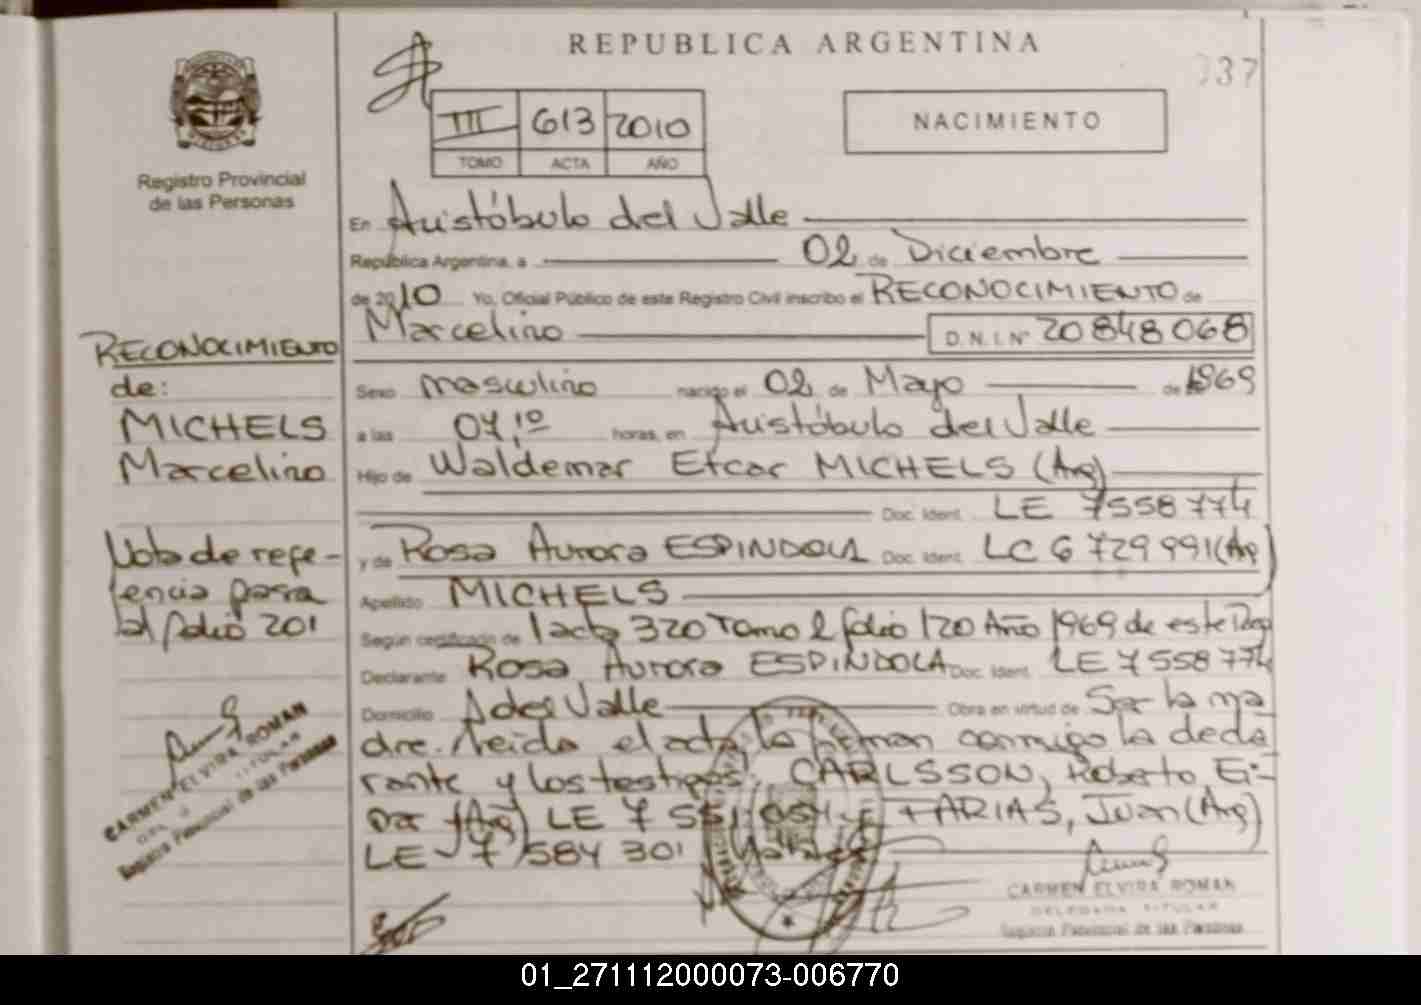 REPUBLICA ARGENTINA
337
III 613 2010
TOMO ACTA AÑO
NACIMIENTO
Registro Provincial
de las Personas
En Aristóbulo del Valle
República Argentina, a 02 de Diciembre
de 2010 Yo, Oficial Público de este Registro Civil inscribo el RECONOCIMIENTO de
Marcelino D.N.I. Nº 20 848 068
RECONOCIMIENTO
de:
MICHELS
Marcelino
Nota de refe-
rencia pasa
al folio 201
Sexo masculino nacido el 02 de Mayo de 1969
a las 07,10 horas, en Aristóbulo del Valle
Hijo de Waldemar Etcar MICHELS (Arg)
Doc. Ident. LE 7558 774
y de Rosa Aurora ESPINDOLA Doc. Ident. LC 6 729 991 (Arg)
Apellido MICHELS
Según certificado de acta 320 Tomo 2 folio 120 Año 1969 de este
Declarante Rosa Aurora ESPINDOLA Doc. Ident. LE 7 558 774
Domicilio A del Valle Obra en virtud de Ser la ma
dre. Leida el acta la firman conmigo la decla
rante y los testigos: CARLSSON, Roberto Ei-
nar (Arg) LE 7 551 FARIAS, Juan (Arg)
LE 7 584 301
CARMEN ELVIRA ROMAN
DELEGADA TITULAR
Registro Provincial de las Personas
CARMEN ELVIRA ROMAN
TITULAR
Registro Provincial de las Personas
01_271112000073-006770